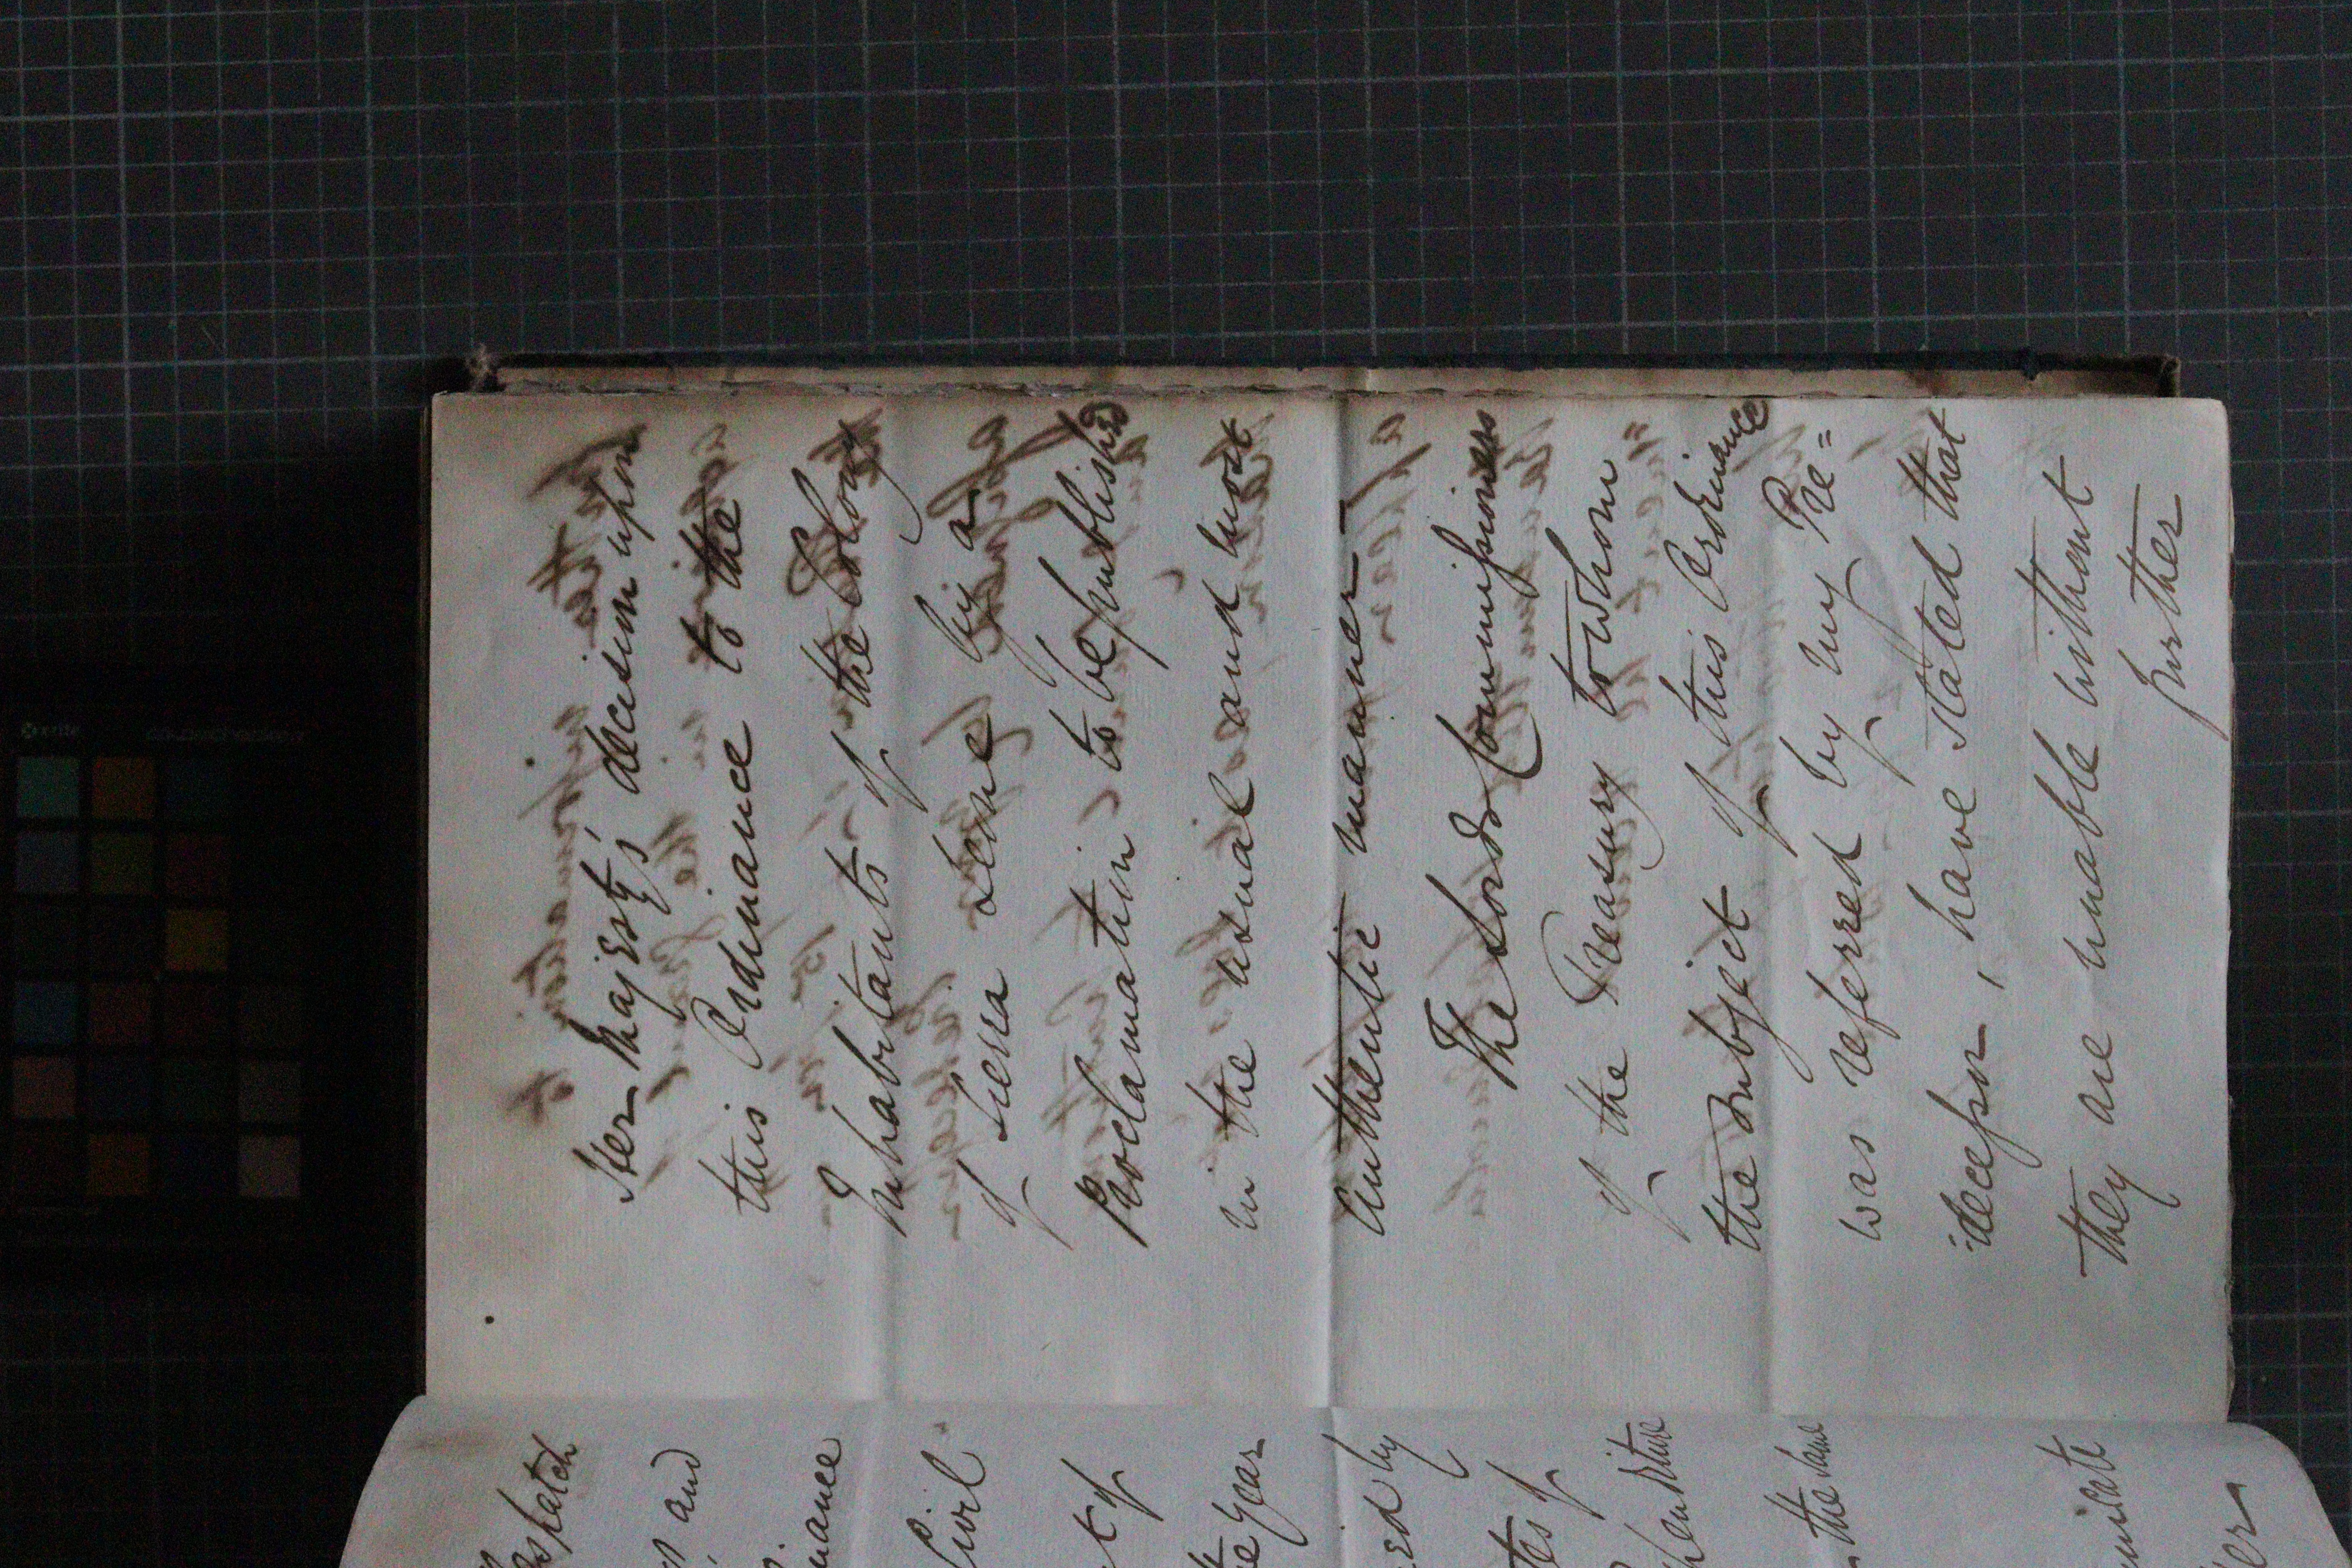 Her Majesty's decision upon
this Ordinance to the
Inhabitants of the Colony
of Sierra Leone by a
Proclamation to be published
in the usual and most
authentic manner.
The Lords Commissioners
of the Treasury to whom
the subject of this Ordinance
was referred by my Pre=
=decessor, have stated that
they are unable without
further
and
Civil
the year
by
the same